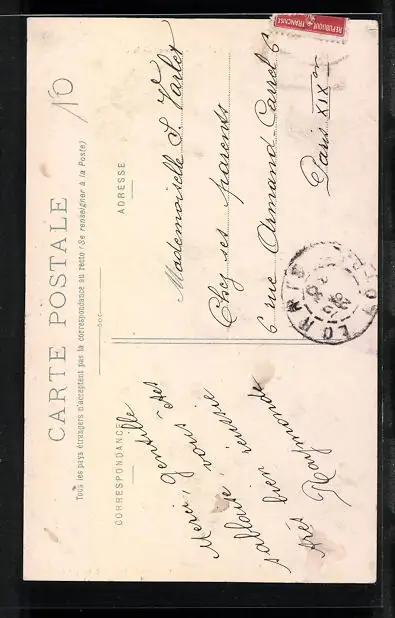 CARTE POSTALE
Tous les pays étrangers n'acceptent pas la correspondance au recto (Se renseigner à la Poste)
CORRESPONDANCE
ADRESSE
10
REPUBLIQUE FRANCAISE
Merci, Gentille
vous êtes
réussie
bien
très Raymonde
Mademoiselle S. Varlet
Chez ses parents
6 rue Armand-Carrel 6
Paris XIXe
LORRIS